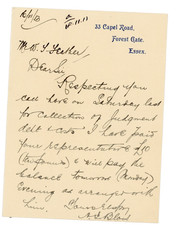 33 Capel Road,
Forest Gate,
Essex.
Dear Sir
Respecting your
call here on Saturday last
for collection of Judgment
debt & costs I have paid
your representative £10
(ten pounds) & will pay the
balance tomorrow (Monday)
evening as arranged with
him. Yours truly